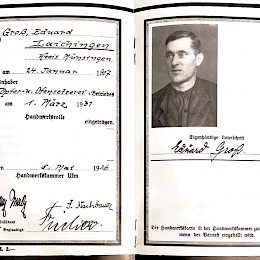 Groß, Eduard
Laichingen
Kreis Münsingen
am 24. Januar 1907
inhaber
Töpfer- u. Ofensetzerei Betriebes
am 1. März 1931
Handwerksrolle
eingetragen.
8. Mai 1936
Handwerkskammer Ulm
Eigenhändige Unterschrift
Eduard Groß.
Die Handwerkskarte ist der Handwerkskammer
wenn der Betrieb eingestellt wird.